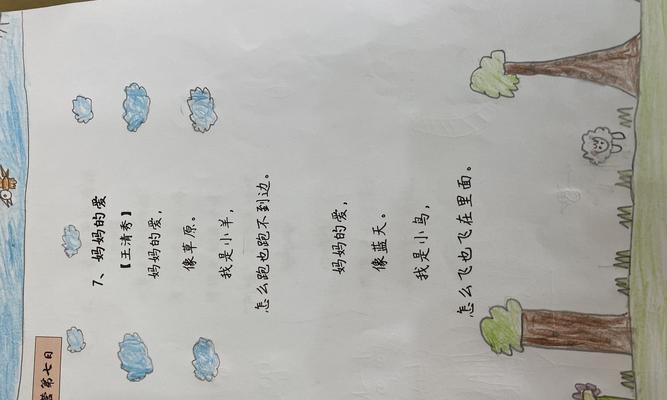 营第七日
7、妈妈的爱
【王清秀】
妈妈的爱，
像草原。
我是小羊，
怎么跑也跑不到边。
妈妈的爱，
像蓝天。
我是小鸟，
怎么飞也飞在里面。